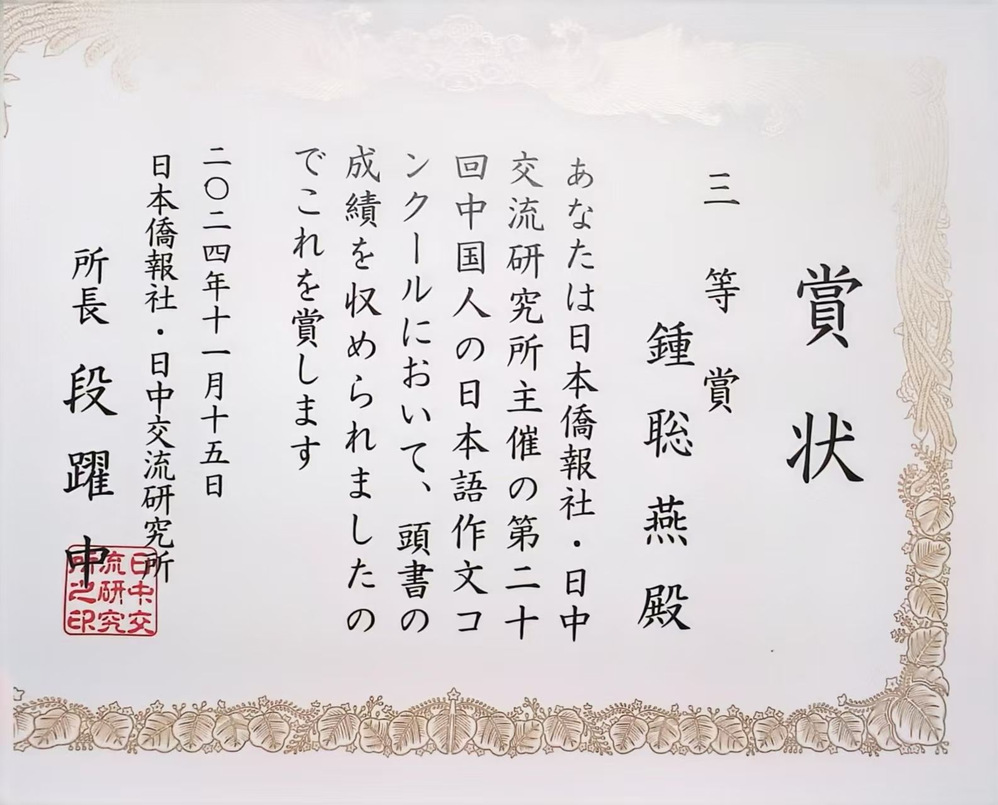 賞状
三等賞
鍾聡燕殿
あなたは日本僑報社・日中
交流研究所主催の第二十
回中国人の日本語作文コ
ンクールにおいて、頭書の
成績を収められましたの
でこれを賞します
二〇二四年十一月十五日
日本僑報社・日中交流研究所
所長 段躍中
日中交
流研究
所之印